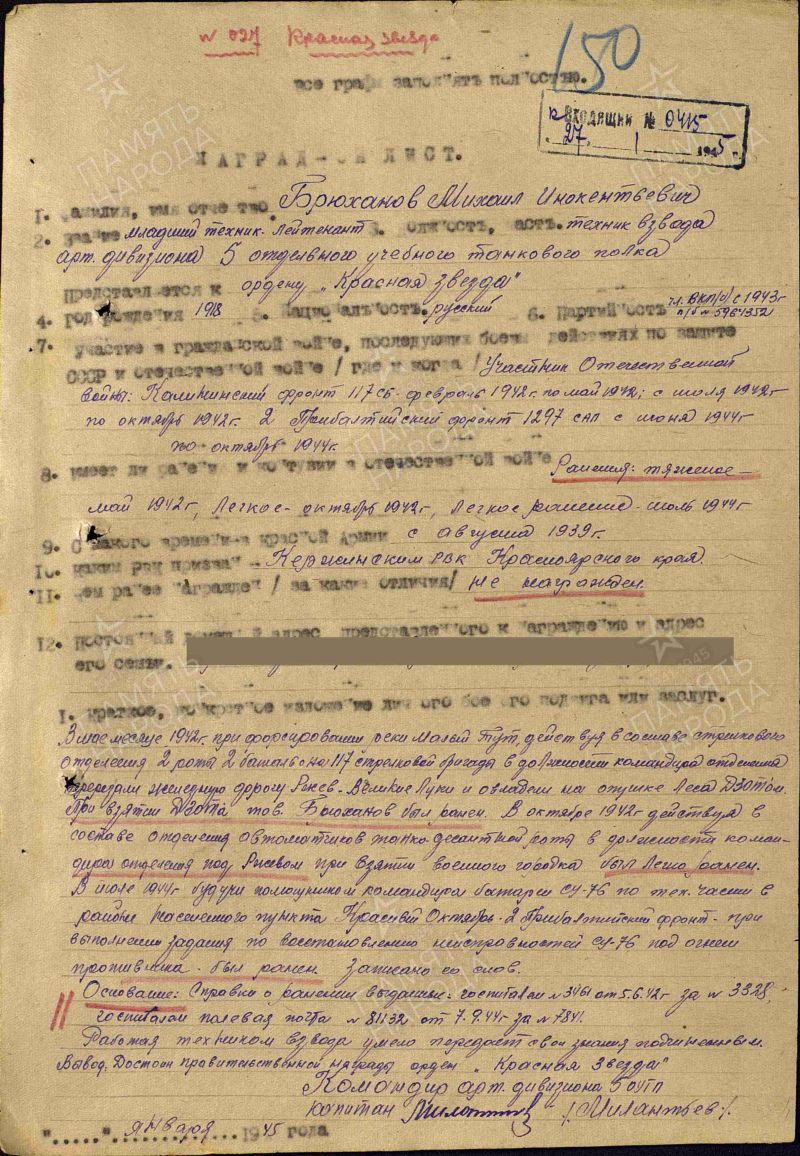 N 027 Красная звезда
150
все графы заполнять полностью.
Входящий № 0415
27 1 1945
НАГРАДНОЙ ЛИСТ.
1. Фамилия, имя отчество Брюханов Михаил Инокентьевич
2. звание младший техник-лейтенант 3. должность, часть. техник взвода
арт. дивизиона 5 отдельного учебного танкового полка
Представляется к ордену „Красная звезда"
4. год рождения 1918 5. Национальность. русский 6. Партийность чл. ВКП(б) с 1943г
п/б № 5964352
7. участие в гражданской войне, последующих боевых действиях по защите
СССР и отечественной войне /где и когда/ Участник Отечественной
войны: Калининский фронт 117 сб- февраль 1942г. по май 1942; с июля 1942г
по октябрь 1942г. 2 Прибалтийский фронт 1297 сап с июня 1944г
по октябрь 1944г.
8. имеет ли ранения и контузии в отечественной войне Ранения: тяжелое-
май 1942г, Легкое- октябрь 1942г, Легкое ранение- июль 1944г
9. С какого времени в красной Армии с августа 1939г.
10. каким РВК призван - РВК Красноярского края.
11. чем ранее награжден /за какие отличия/ не награжден.
12. постоянный домашний адрес представленного к награждению и адрес
его семьи.
1. краткое, конкретное изложение личного боевого подвига или заслуг.
В мае месяце 1942г. при форсировании реки Малый Тут, действуя в составе стрелкового
отделения 2 роты 2 батальона 117 стрелковой бригады в должности командира отделения
перерезали железную дорогу Ржев- Великие Луки и овладели на опушке Леса ДЗОТом.
При взятии ДЗОТа тов. Брюханов был ранен. В октябре 1942г действуя в
составе отделения автоматчиков танко-десантной роты в должности коман-
дира отделения под Ржевом при взятии военного городка был Легко ранен.
В июле 1944г будучи помощником командира батареи СУ-76 по тех. части в
районе населенного пункта Красный Октябрь- 2 Прибалтийский фронт- при
выполнении задания по восстановлению неисправностей СУ-76 под огнем
противника- был ранен. Записано со слов.
Основание: Справки о ранении выданные: госпиталем № 3461 от 5.6.42г за № 3328,
госпиталем полевая почта № 81132 от 7.9.44г за № 784.
Работая техником взвода умело передает свои знания подчиненным.
Вывод: Достоин правительственной награды орден „Красная Звезда"
Командир арт. дивизиона 5 оутп
капитан /Милантьев/.
"....." января 1945 года
ПАМЯТЬ НАРОДА